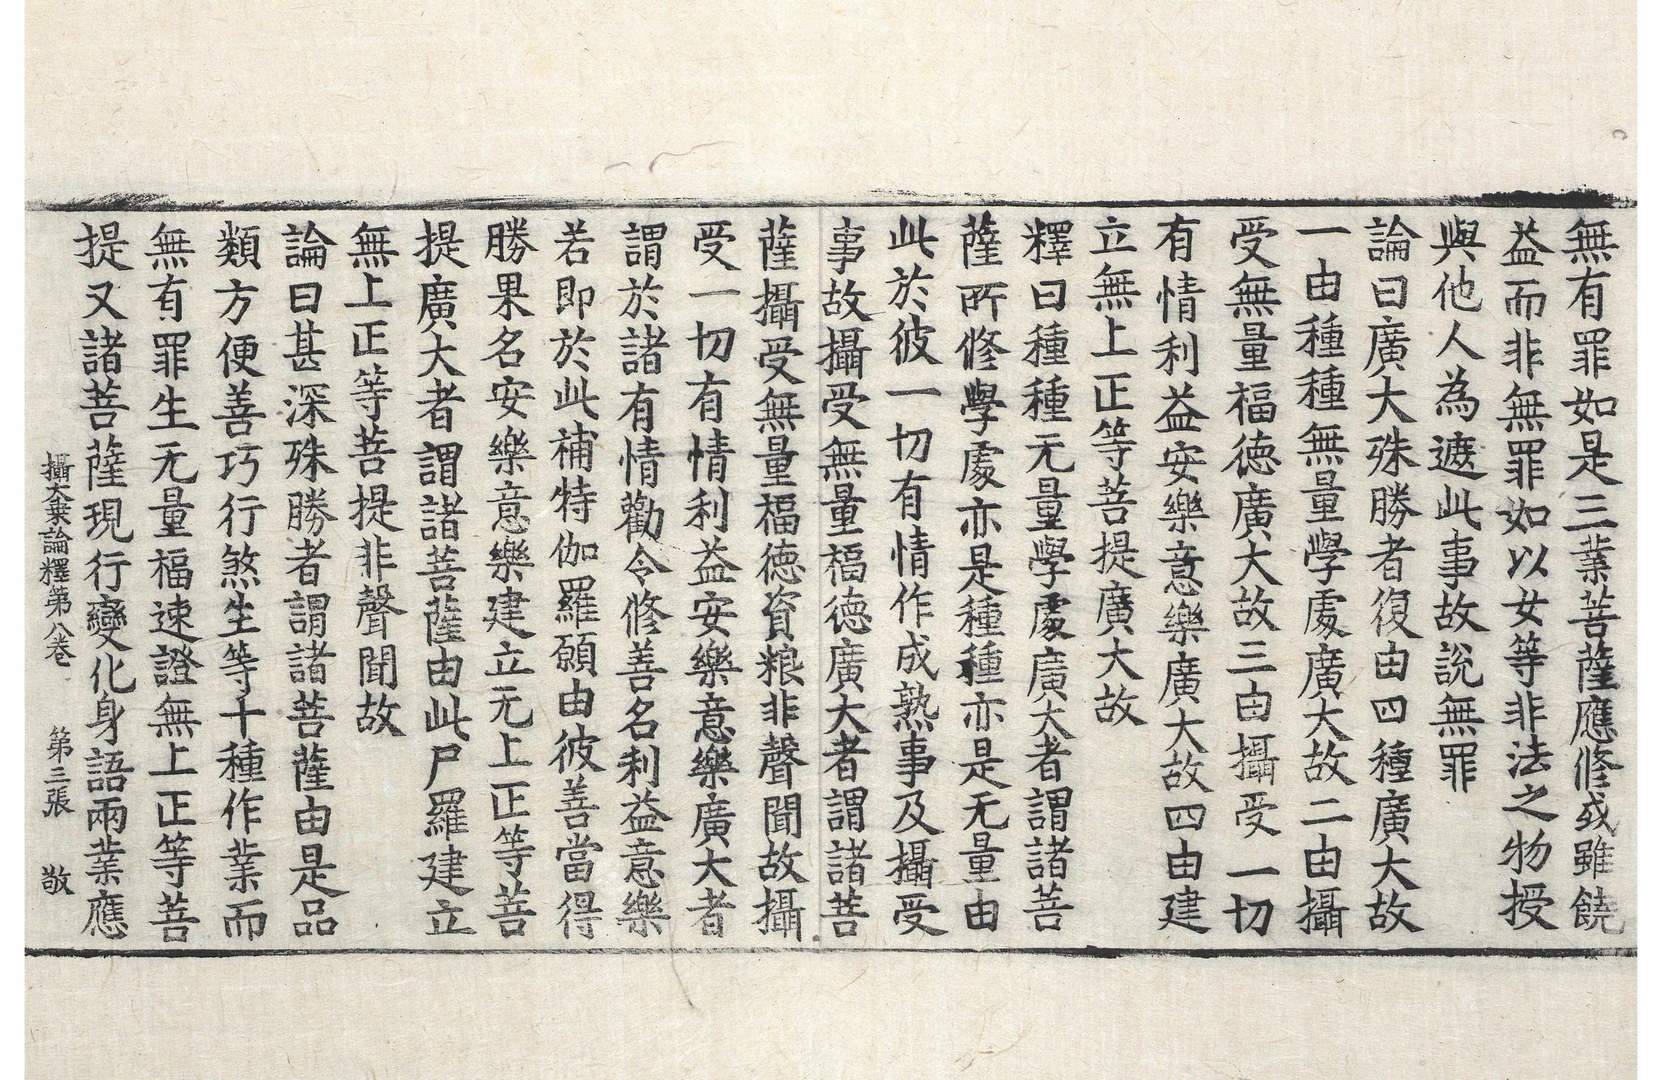 無有罪如是三業菩薩應修或雖饒
益而非無罪如以女等非法之物授
與他人為遮此事故說無罪
論曰廣大殊勝者復由四種廣大故
一由種種無量學處廣大故二由攝
受無量福德廣大故三由攝受一切
有情利益安樂意樂廣大故四由建
立無上正等菩提廣大故
釋曰種種无量學處廣大者謂諸菩
薩所修學處亦是種種亦是无量由
此於彼一切有情作成熟事及攝受
事故攝受無量福德廣大者謂諸菩
薩攝受無量福德資粮非聲聞故攝
受一切有情利益安樂意樂廣大者
謂於諸有情勸令修善名利益意樂
若即於此補特伽羅願由彼善當得
勝果名安樂意樂建立无上正等菩
提廣大者謂諸菩薩由此尸羅建立
無上正等菩提非聲聞故
論曰甚深殊勝者謂諸菩薩由是品
類方便善巧行煞生等十種作業而
無有罪生无量福速證無上正等菩
提又諸菩薩現行變化身語兩業應
攝大乗論釋第八卷 第三張 敬